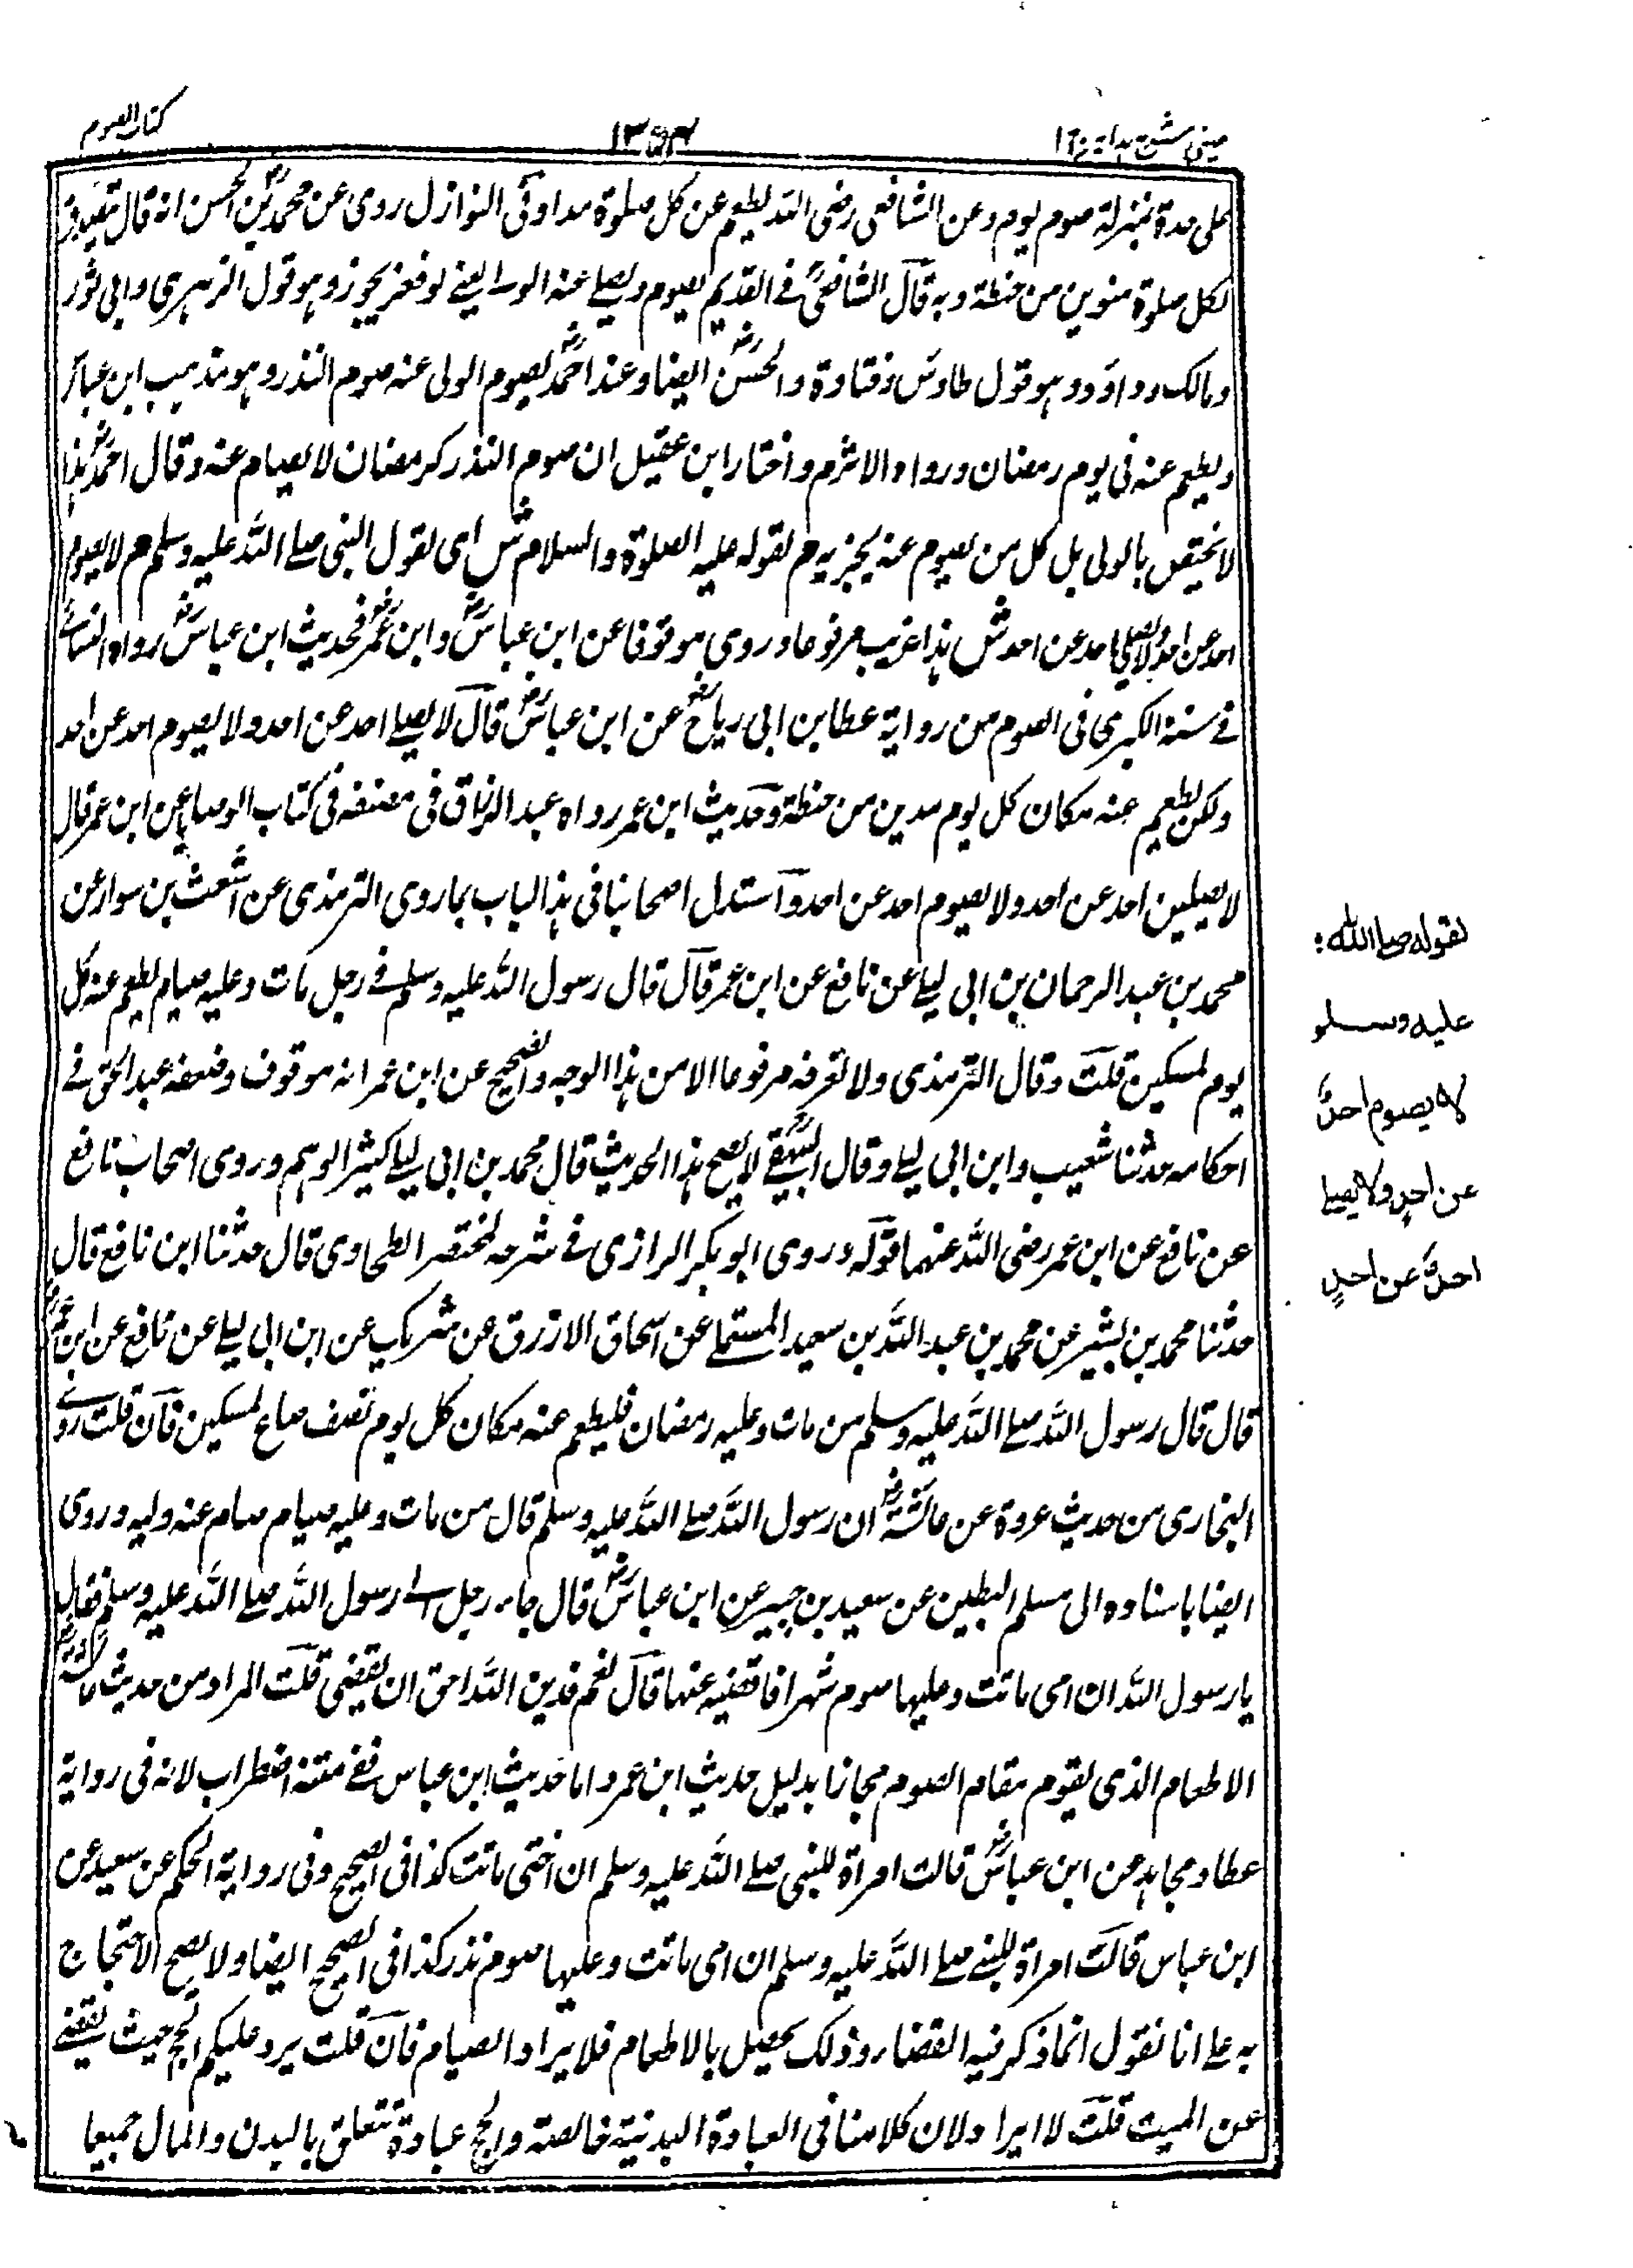 عینی شرح ہدایہ ج۱
۱۳۵۴
کتاب الصوم
علی حدة بمنزلة صوم یوم وعن الشافعی رضی اللہ یطعم عن کل صلوة مدا وفی النوازل روی عن محمد بن الحسن انہ قال
لکل صلوة منوین من حنطة وبہ قال الشافعی فے القدیم یصوم ویصلے عنہ الولے یعنے لو فعل یجوز وہو قول الزہری وابی ثور
ومالک وداؤد وہو قول طاوس وقتادة والحسن ایضا وعند احمد یصوم الولی عنہ صوم النذر وہو مذہب ابن عباس
ویطعم عنہ فی یوم رمضان ورواہ الاثرم واختار ابن عقیل ان صوم النذر کرمضان لا یصام عنہ وقال احمد ہذا
لا یختص بالولی بل کل من یصوم عنہ یجزیہ م لقولہ علیہ الصلوة والسلام ش ای لقول النبی صلے اللہ علیہ وسلم م لا یصوم
احد عن احد ولا یصلی احد عن احد ش ہذا غریب مرفوعا وروی موقوفا عن ابن عباس وابن عمر فحدیث ابن عباس رواہ النسائے
فے سننہ الکبری فی الصوم من روایة عطا بن ابی ریاح عن ابن عباس قال لا یصلے احد عن احد ولا یصوم احد عن احد
ولکن یطعم عنہ مکان کل یوم مدین من حنطة وحدیث ابن عمر رواہ عبد الرزاق فی مصنفہ فی کتاب الوصایا عن ابن عمر قال
لا یصلین احد عن احد ولا یصوم احد عن احد واستدل اصحابنا فی ہذا الباب بما روی الترمذی عن اشعث بن سوار عن
محمد بن عبد الرحمان بن ابی لیلے عن نافع عن ابن عمر قال قال رسول اللہ علیہ وسلم فے رجل مات وعلیہ صیام یطعم عنہ کل
یوم لمسکین قلت وقال الترمذی ولا نعرفہ مرفوعا الا من ہذا الوجہ والصحیح عن ابن عمر انہ موقوف وضعفہ عبد الحق فے
احکامہ حدثنا شعیب وابن ابی لیلے وقال البیہقے لا یصح ہذا الحدیث قال محمد بن ابی لیلے کثیر الوہم وروی اصحاب نافع
عن نافع عن ابن عمر رضی اللہ عنہما قولہ وروی ابو بکر الرازی فے شرحہ لمختصر الطحاوی قال حدثنا ابن نافع قال
حدثنا محمد بن بشیر عن محمد بن عبد اللہ بن سعید المستملے عن اسحاق الازرق عن شریک عن ابن ابی لیلے عن نافع عن ابن عمر
قال قال رسول اللہ صلے اللہ علیہ وسلم من مات وعلیہ رمضان فلیطعم عنہ مکان کل یوم نصف صاع لمسکین فان قلت روے
البخاری من حدیث عروة عن عائشة ان رسول اللہ صلے اللہ علیہ وسلم قال من مات وعلیہ صیام صام عنہ ولیہ وروی
ایضا باسنادہ الی مسلم البطین عن سعید بن جبیر عن ابن عباس قال جاء رجل الے رسول اللہ صلے اللہ علیہ وسلم فقال
یا رسول اللہ ان امی ماتت وعلیہا صوم شہر افاقضیہ عنہا قال نعم فدین اللہ احق ان یقضی قلت المراد من حدیث عائشة
الاطعام الذی یقوم مقام الصوم مجازا بدلیل حدیث ابن عمر واما حدیث ابن عباس ففے متنہ اضطراب لانہ فی روایة
عطا ومجاہد عن ابن عباس قالت امراة للنبی صلے اللہ علیہ وسلم ان اختی ماتت کذا فی الصحیح وفی روایة الحکم عن سعید عن
ابن عباس قالت امراة للنبے صلے اللہ علیہ وسلم ان امی ماتت وعلیہا صوم نذر کذا فی الصحیح ایضا ولا یصح الاحتجاج
بہ علے انا نقول انما ذکر فیہ القضاء وذلک یحصل بالاطعام فلا یراد الصیام فان قلت یرد علیکم الحج حیث یقضے
عن المیت قلت لا ایراد لان کلامنا فی العبادة البدنیة خالصة والحج عبادة تتعلق بالبدن والمال جمیعا
لقوله صلے الله
علیه وسلم
لا یصوم احدٌ
عن احدٍ ولا یصلے
احدٌ عن احدٍ